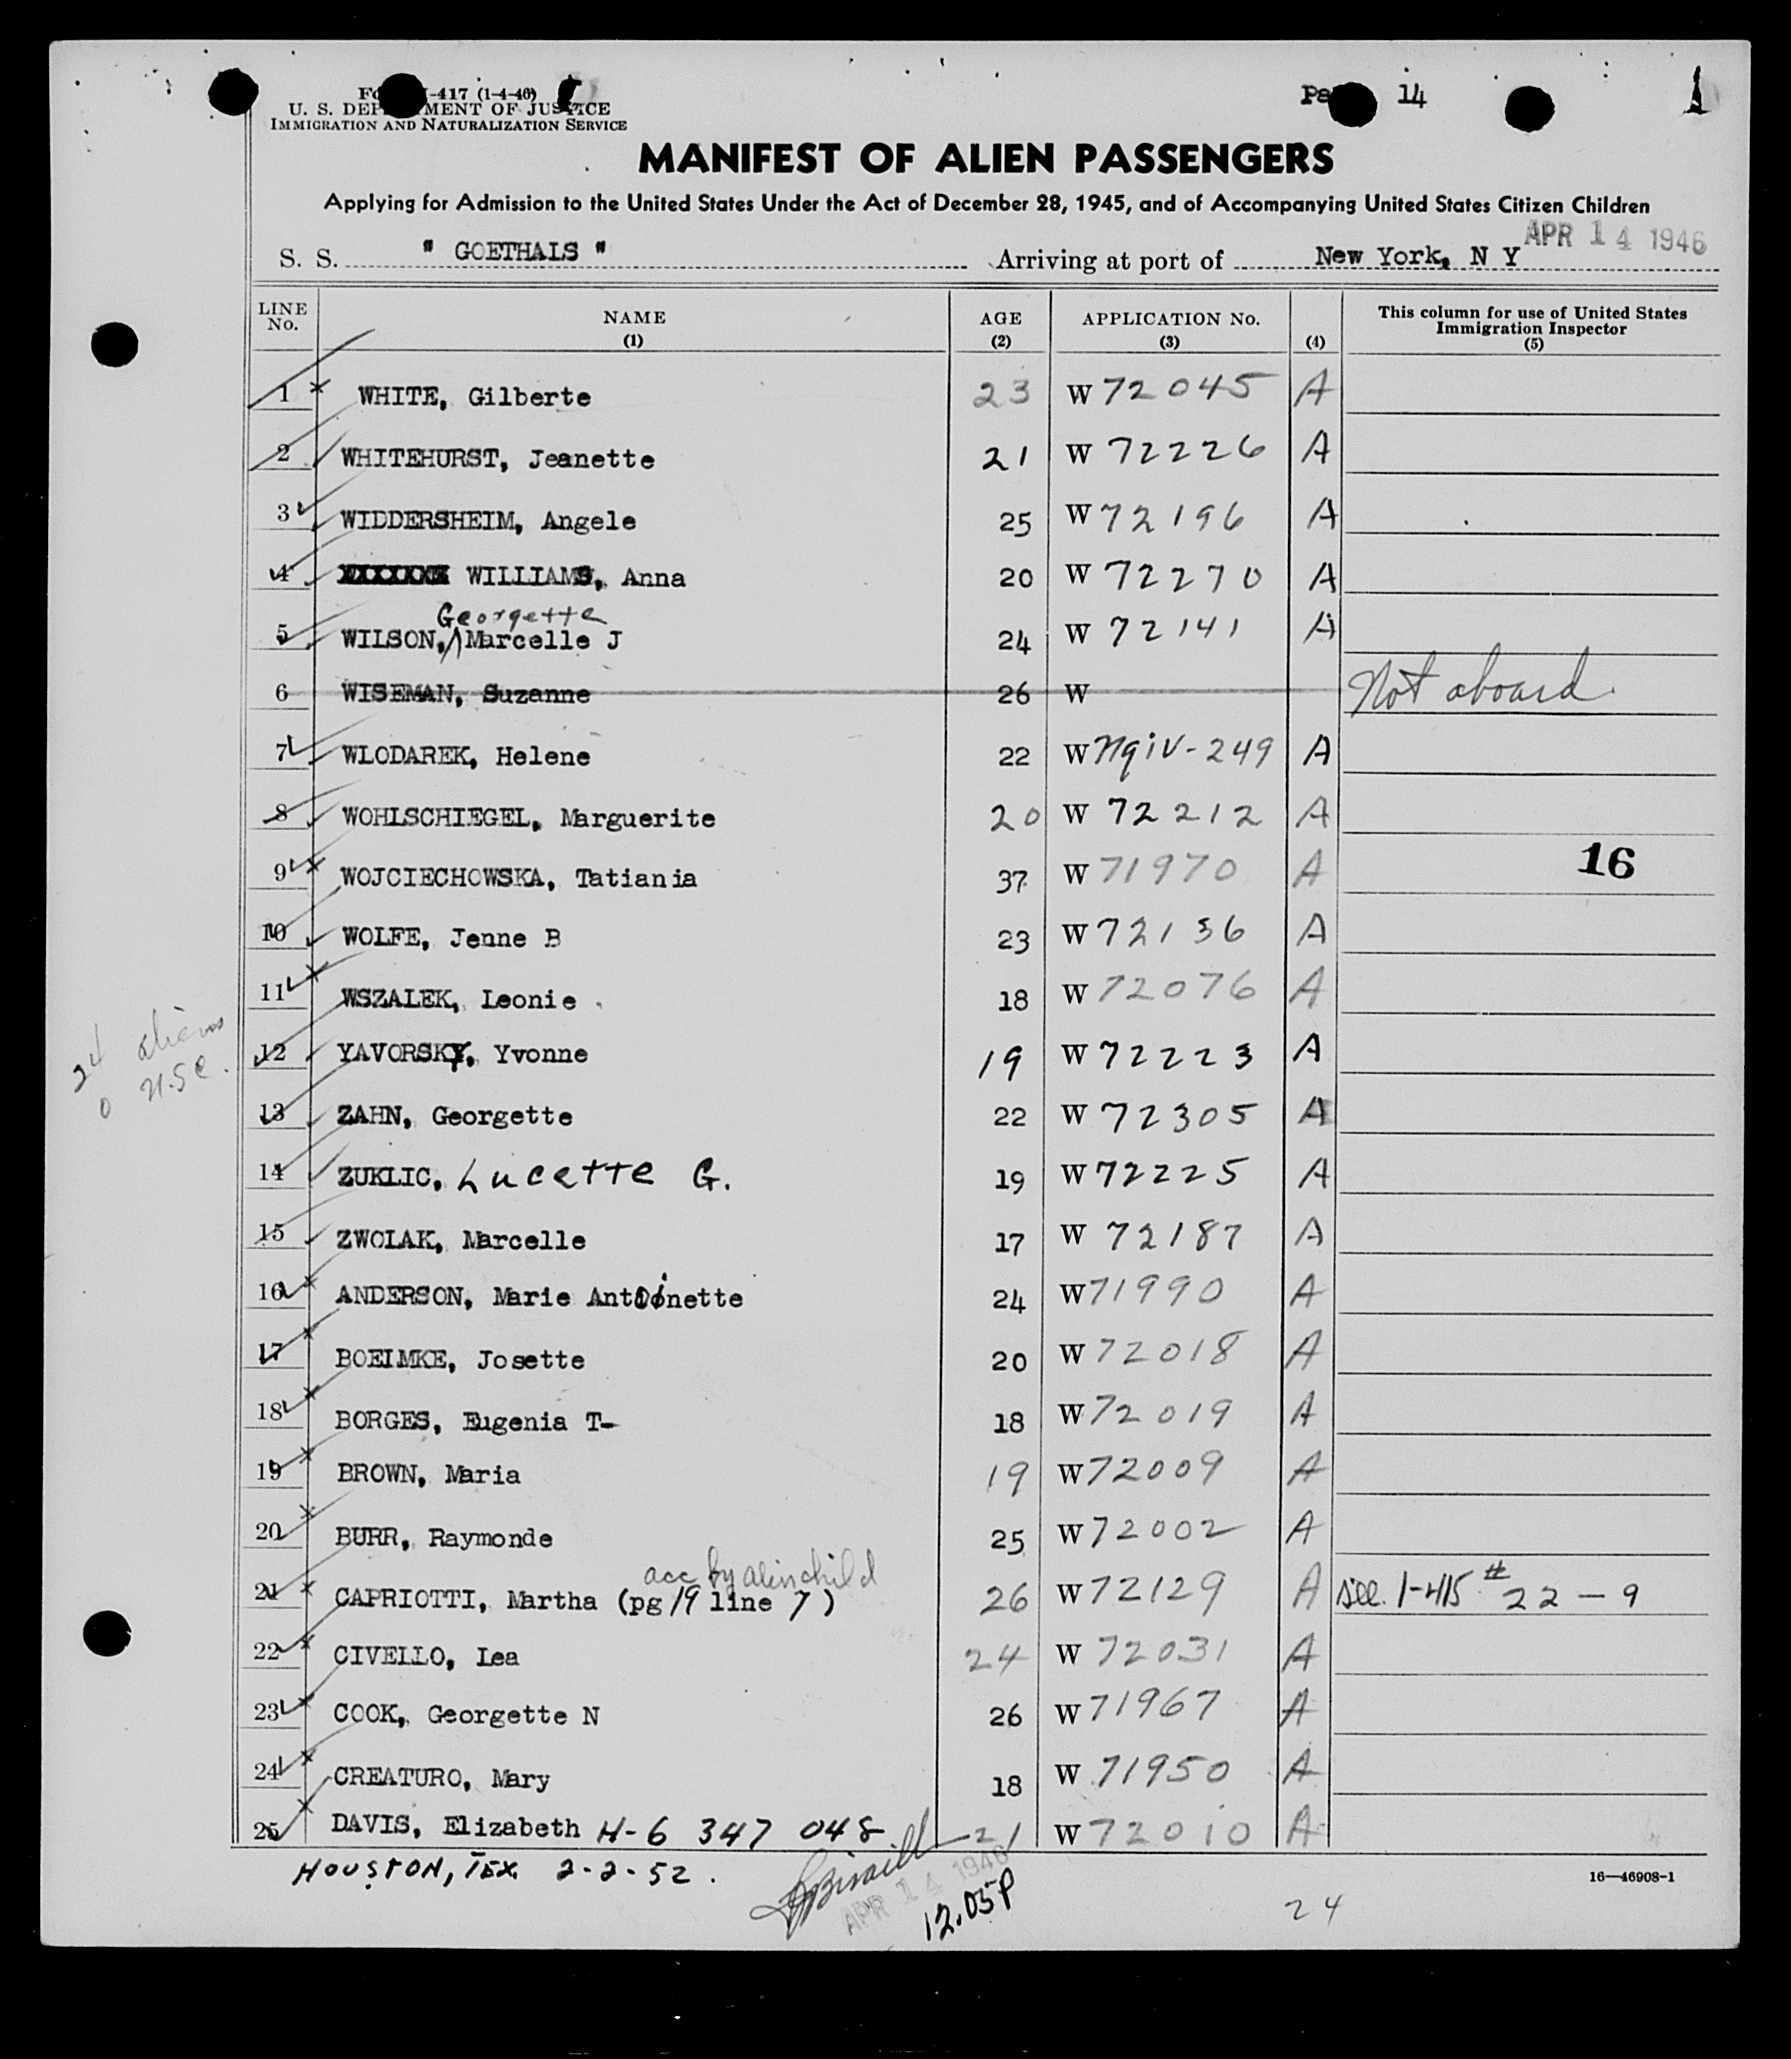 -417 (1-4-46)
U. S. DEP MENT OF JUSTICE
IMMIGRATION AND NATURALIZATION SERVICE
Pa 14
1
MANIFEST OF ALIEN PASSENGERS
Applying for Admission to the United States Under the Act of December 28, 1945, and of Accompanying United States Citizen Children
APR 14 1946
S. S. " GOETHALS " Arriving at port of New York, N Y
LINE No. NAME (1) AGE (2) APPLICATION No. (3) (4) This column for use of United States Immigration Inspector (5)
1 x WHITE, Gilberte 23 W 72045 A
2 WHITEHURST, Jeanette 21 W 72226 A
3 WIDDERSHEIM, Angele 25 W 72196 A
4 XXXXXXX WILLIAMS, Anna 20 W 72270 A
Georgette
5 WILSON, Marcelle J 24 W 72141 A
6 WISEMAN, Suzanne 26 W Not aboard
7 WLODAREK, Helene 22 W nqiv-249 A
8 WOHLSCHIEGEL, Marguerite 20 W 72212 A
9 x WOJCIECHOWSKA, Tatiania 37 W 71970 A 16
10 WOLFE, Jenne B 23 W 72136 A
11 x WSZALEK, Leonie 18 W 72076 A
24 aliens
0 U.S.C.
12 YAVORSKY, Yvonne 19 W 72223 A
13 ZAHN, Georgette 22 W 72305 A
14 ZUKLIC, Lucette G. 19 W 72225 A
15 ZWOLAK, Marcelle 17 W 72187 A
16 x ANDERSON, Marie Antoinette 24 W 71990 A
17 x BOEIMKE, Josette 20 W 72018 A
18 x BORGES, Eugenia T- 18 W 72019 A
19 x BROWN, Maria 19 W 72009 A
20 x BURR, Raymonde 25 W 72002 A
acc by alien child
21 x CAPRIOTTI, Martha (pg 19 line 7 ) 26 W 72129 A See I-415 # 22 - 9
22 x CIVELLO, Lea 24 W 72031 A
23 x COOK, Georgette N 26 W 71967 A
24 x CREATURO, Mary 18 W 71950 A
25 x DAVIS, Elizabeth H-6 347 048 21 W 72010 A
HOUSTON, TEX. 2-2-52.
APR 14 1946
12.05P
16—46908-1
24